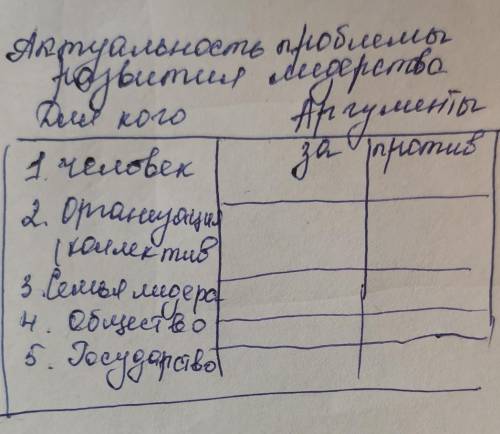 Актуальность проблемы
развития лидерства
Для кого Аргументы
1. человек за против
2. Организация
/коллектив
3. Семья лидера
4. Общество
5. Государство